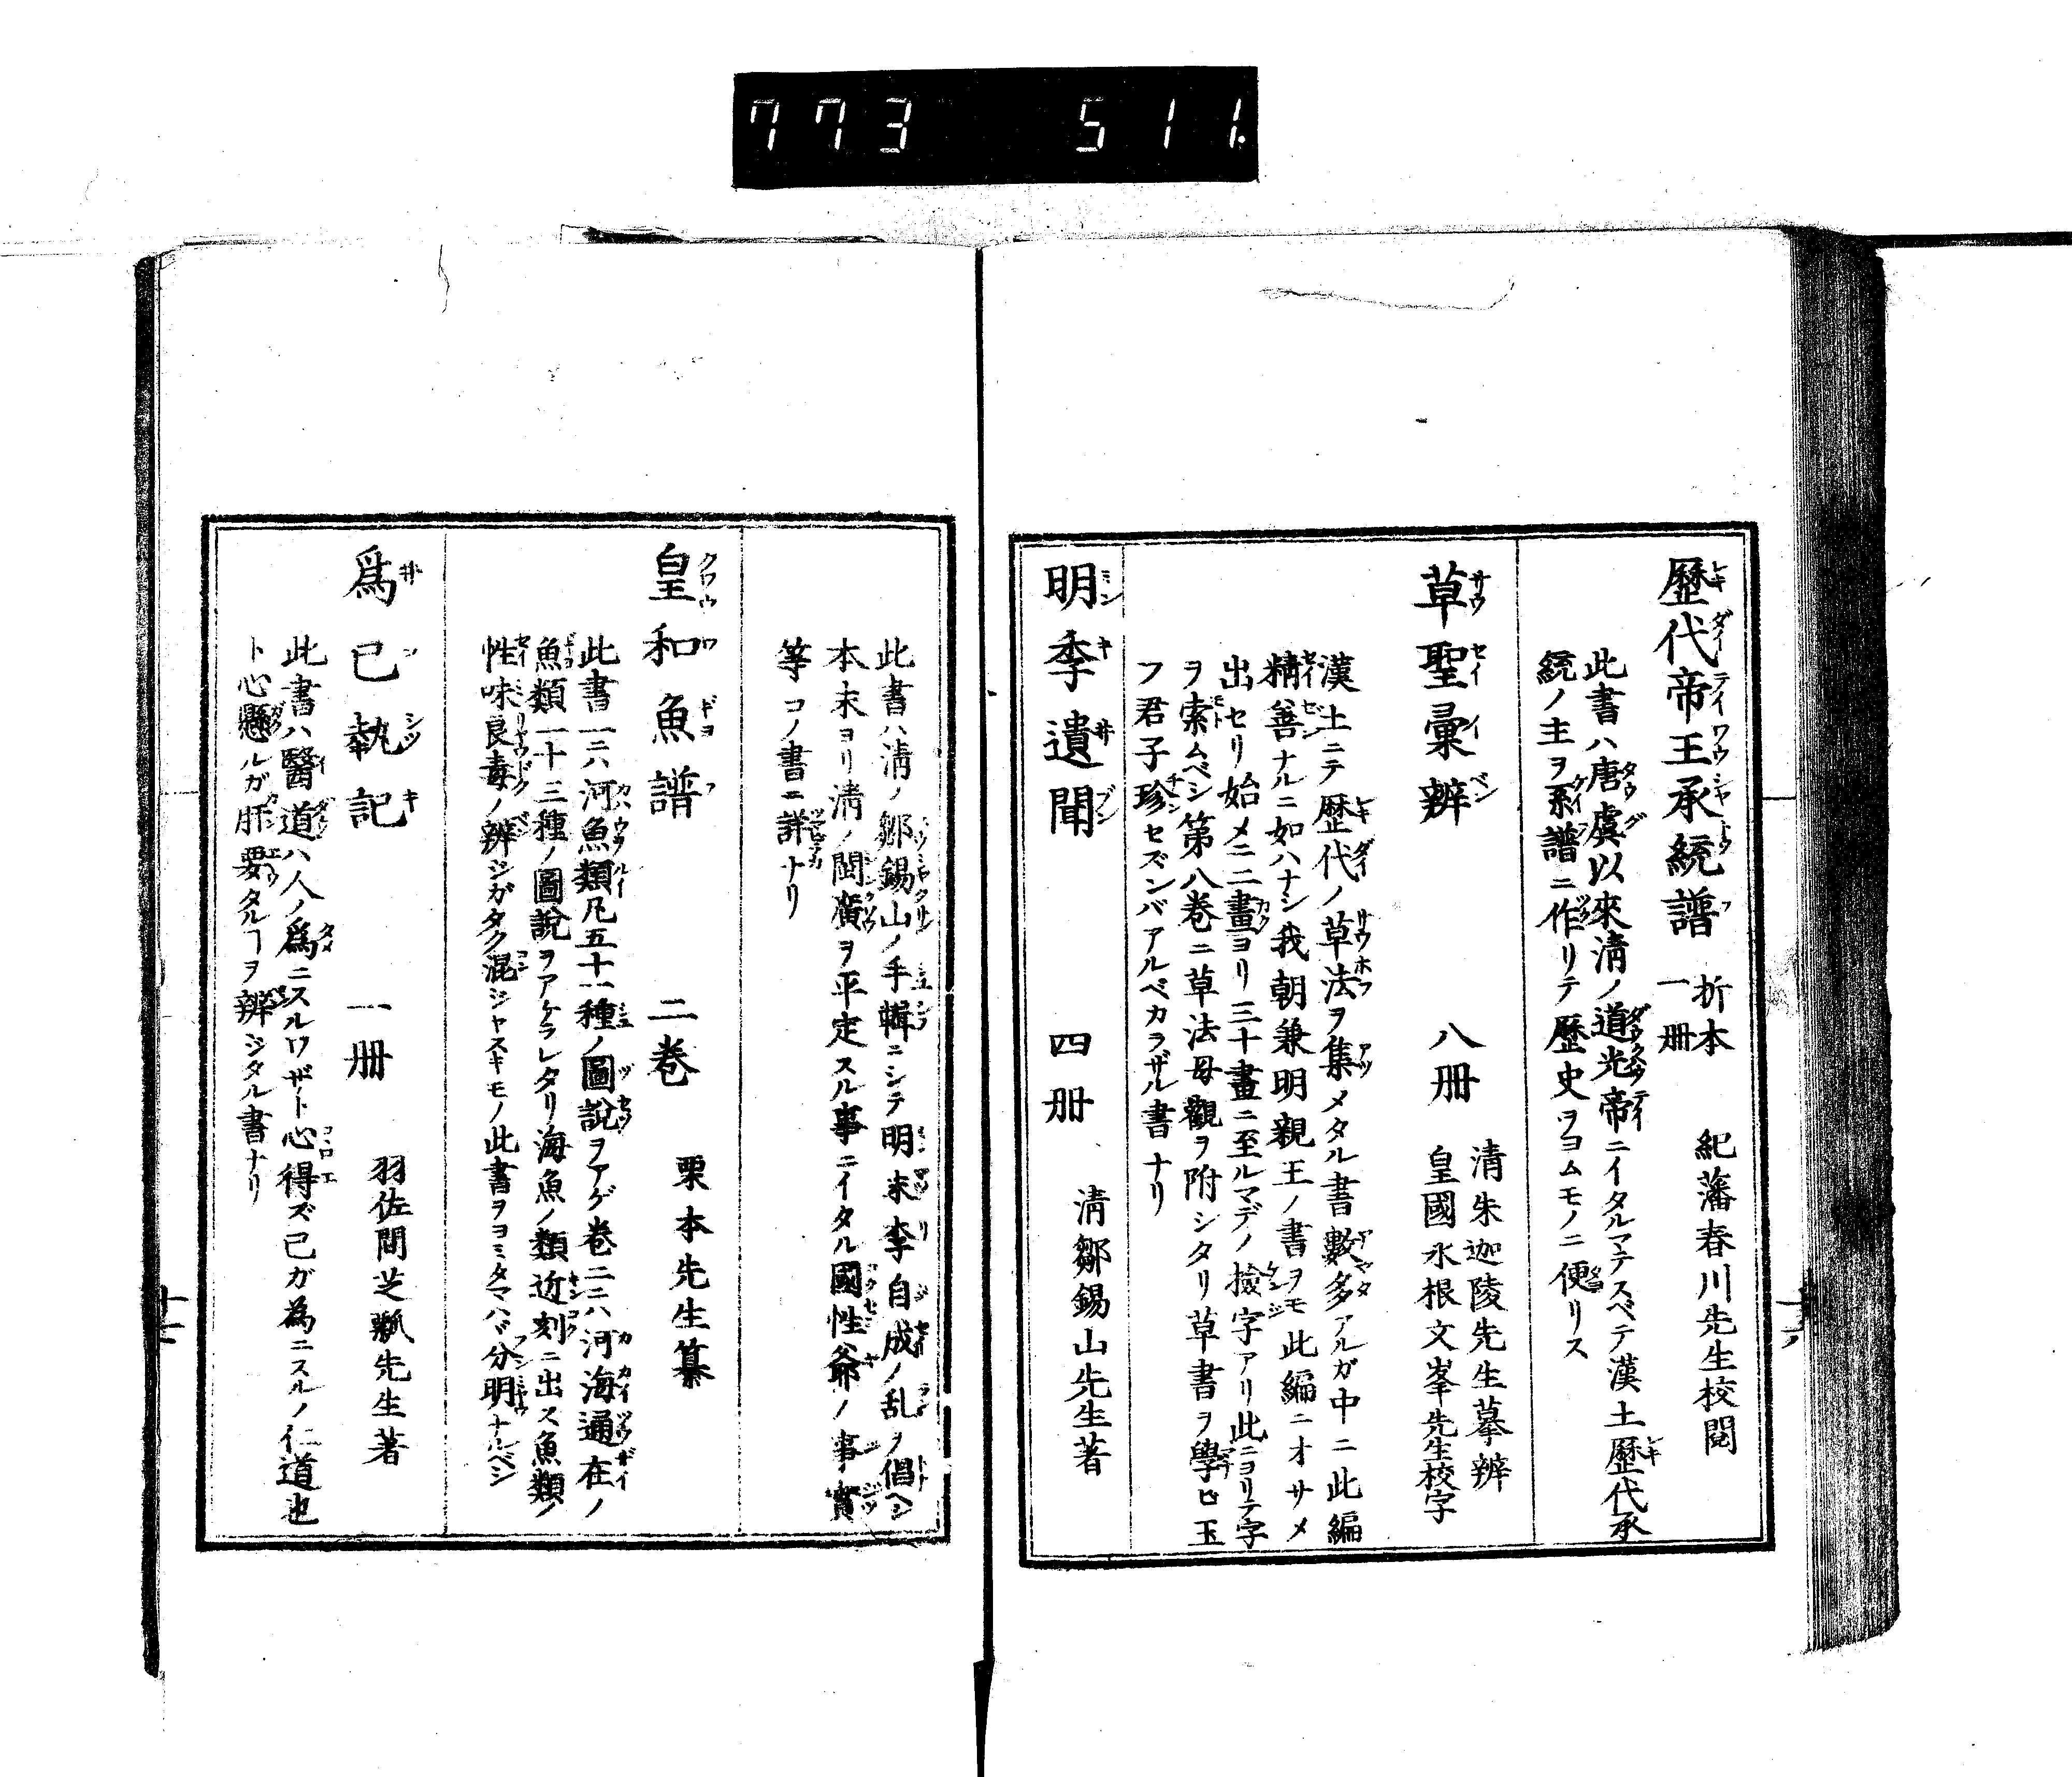 773 511.
歷代帝王承統譜 折本一冊 紀藩春川先生校閲
此書ハ唐虞以來清ノ道光帝ニイタルマテスベテ漢土歷代承
統ノ主ヲ系譜ニ作リテ歷史ヲヨムモノニ便リス
草聖彙辨 八冊 清朱迦陵先生摹辨
皇國水根文峯先生校字
漢土ニテ歷代ノ草法ヲ集メタル書數多アルガ中ニ此編
精善ナルニ如ハナシ我朝兼明親王ノ書ヲモ此編ニオサメ
出セリ始メニ二畫ヨリ三十畫ニ至ルマデノ撿字アリ此ニヨリテ字
ヲ索ムベシ第八巻ニ草法母觀ヲ附シタリ草書ヲ學ビ玉
フ君子珍セズンバアルベカラザル書ナリ
明季遺聞 四冊 清鄒錫山先生著
此書ハ清ノ鄒錫山ノ手輯ニシテ明末李自成ノ乱ヲ倡ヘシ
本末ヨリ清ノ閩廣ヲ平定スル事ニイタル國性爺ノ事實
等コノ書ニ詳ナリ
皇和魚譜 二巻 栗本先生纂
此書一ニハ河魚類凡五十一種ノ圖説ヲアゲ巻二ニハ河海通在ノ
魚類一十三種ノ圖説ヲアケラレタリ海魚ノ類近刻ニ出ス魚類ノ
性味良毒ノ辨ジガタク混ジヤスキモノ此書ヲヨミタマハヾ分明ナルベシ
爲己執記 一冊 羽佐間芝瓢先生著
此書ハ醫道ハ人ノ爲ニスルワザト心得ズ己ガ為ニスルノ仁道也
ト心懸ルガ肝要タルヿヲ辨ジタル書ナリ